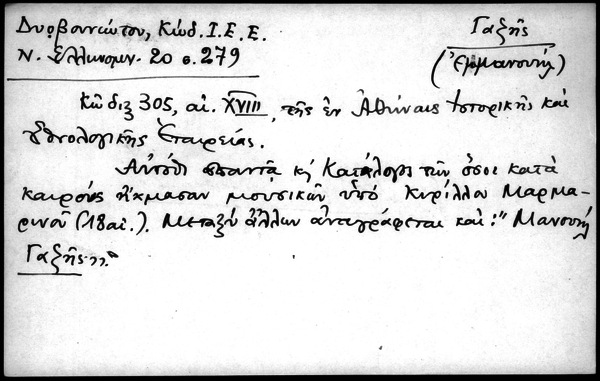 Δυοβουνιώτου, Κώδ. Ι. Ε. Ε.
Ν. Ἑλληνομν. 20 σ. 279
Γαζῆς
(Ἐμμανουήλ)
Κῶδιξ 305, αἰ. XVIII, τῆς ἐν Ἀθήναις Ἱστορικῆς καὶ
Ἐθνολογικῆς Ἑταιρείας.
Αὐτόθι ἀπαντᾷ κ̣ Κατάλογος τῶν ὅσοι κατὰ
καιροὺς ἤκμασαν μουσικῶν ὑπὸ Κυρίλλου Μαρμα-
ρινοῦ (18αἰ.). Μεταξὺ ἄλλων ἀναγράφεται καὶ: "Μανουὴλ
Γαζῆς".